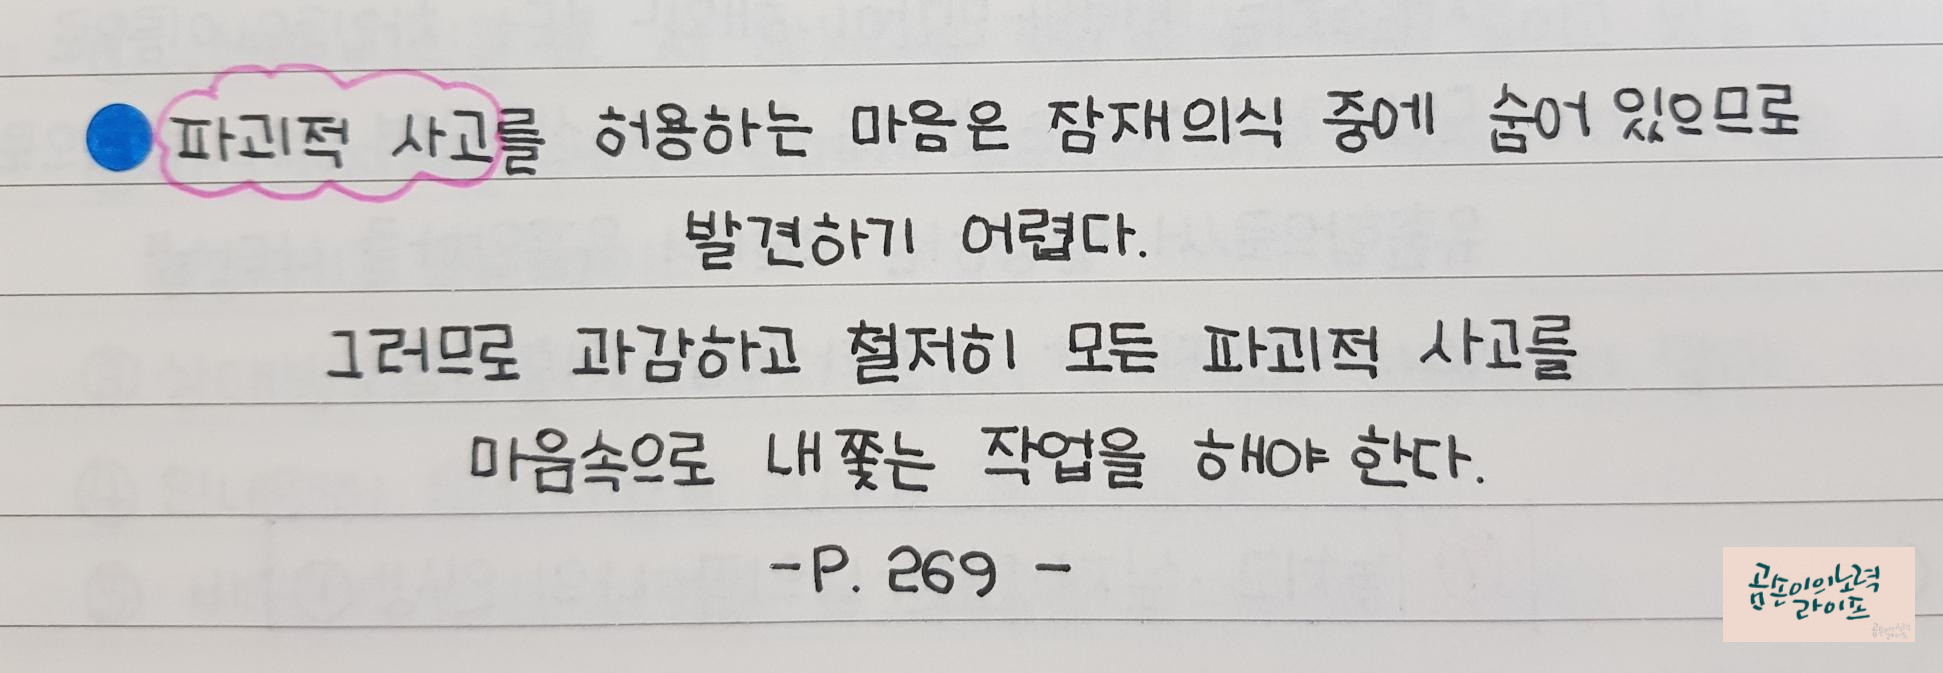 파괴적 사고를 허용하는 마음은 잠재의식 중에 숨어 있으므로
발견하기 어렵다.
그러므로 과감하고 철저히 모든 파괴적 사고를
마음속으로 내쫓는 작업을 해야 한다.
-P. 269 -
곰손이의노력
라이프